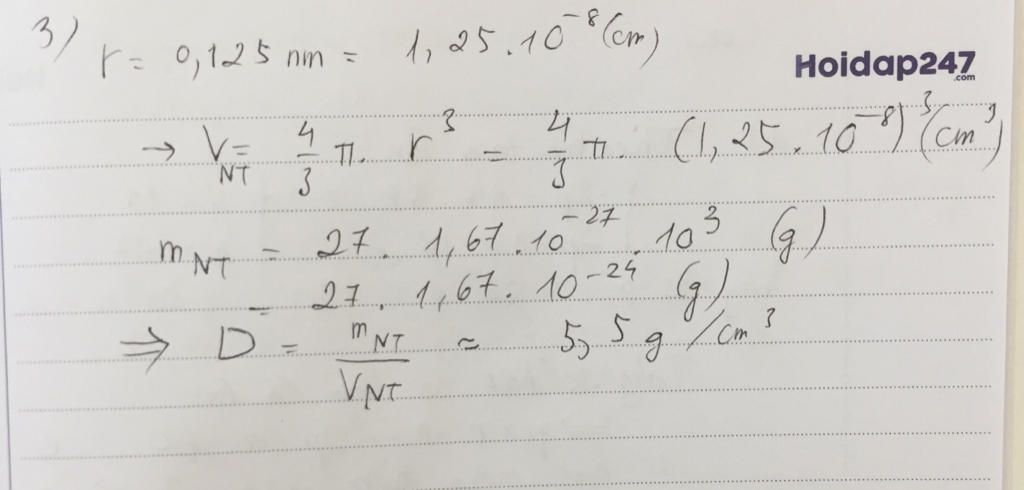 3) r = 0,125 nm = 1,25.10⁻⁸ (cm)
Hoidap247
.com
→ V_NT = 4/3 π. r³ = 4/3 π. (1,25.10⁻⁸)³ (cm³)
m_NT = 27. 1,67.10⁻²⁷.10³ (g)
= 27. 1,67.10⁻²⁴ (g)
⇒ D = m_NT/V_NT ≈ 5,5 g/cm³